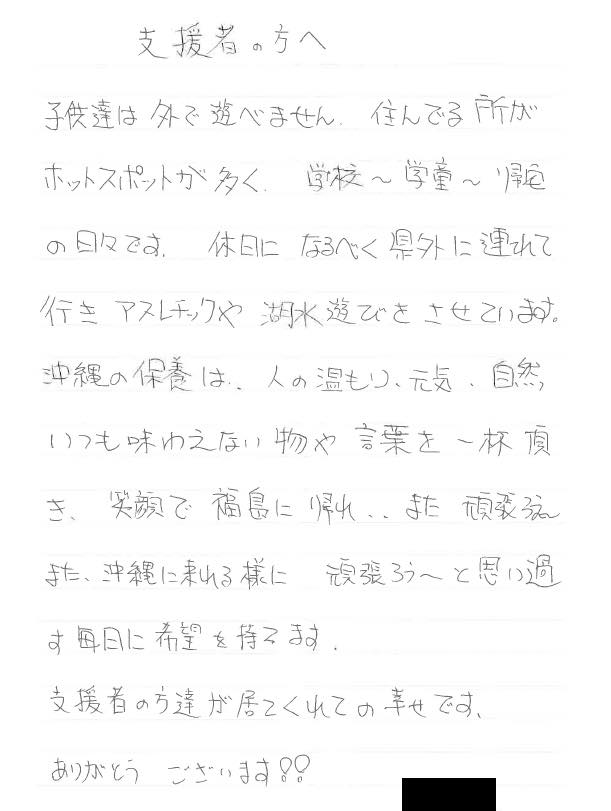 支援者の方へ
子供達は外で遊べません. 住んでる所が
ホットスポットが多く、学校～学童～帰宅
の日々です. 休日に なるべく県外に連れて
行き アスレチックや 湖水遊びをさせています。
沖縄の保養は、人の温もり、元気、自然、
いつも味わえない物や 言葉を 一杯 頂
き、笑顔で 福島に 帰れ、、また 頑張ろぅ～
また、沖縄に来れる様に 頑張ろう～と思い過
す毎日に希望を持てます.
支援者の方達が居てくれての幸せです、
ありがとう ございます!!